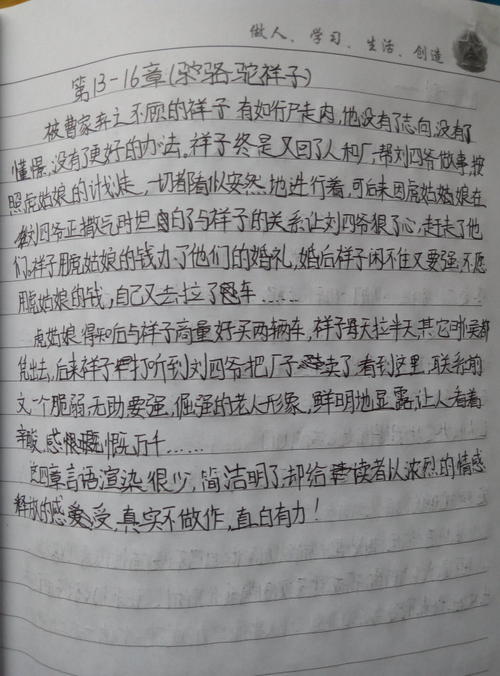 做人、学习、生活、创造
第13-16章(骆驼祥子)
被曹家弃之不顾的祥子 有如行尸走肉,他没有了志向,没有了
憧憬,没有了更好的办法。祥子终是又回了人和厂,帮刘四爷做事,按
照虎姑娘的计划走,一切都看似安然地进行着,可后来因虎姑娘在
刘四爷正撒气时坦白了与祥子的关系,让刘四爷狠了心,赶走了他
们。祥子用虎姑娘的钱办了他们的婚礼,婚后祥子闲不住又要强,不愿
用虎姑娘的钱,自己又去拉了车……
虎姑娘得知后与祥子商量好买两辆车,祥子每天拉半天,其它时候
赁出去,后来祥子打听到刘四爷把厂子卖了,看到这里,联系前
文,一个脆弱无助要强,倔强的老人形象,鲜明地显露,让人看着
辛酸,感慨万千……
这四章言语渲染很少,简洁明了,却给读者以浓烈的情感
释放的感受,真实不做作,直白有力!